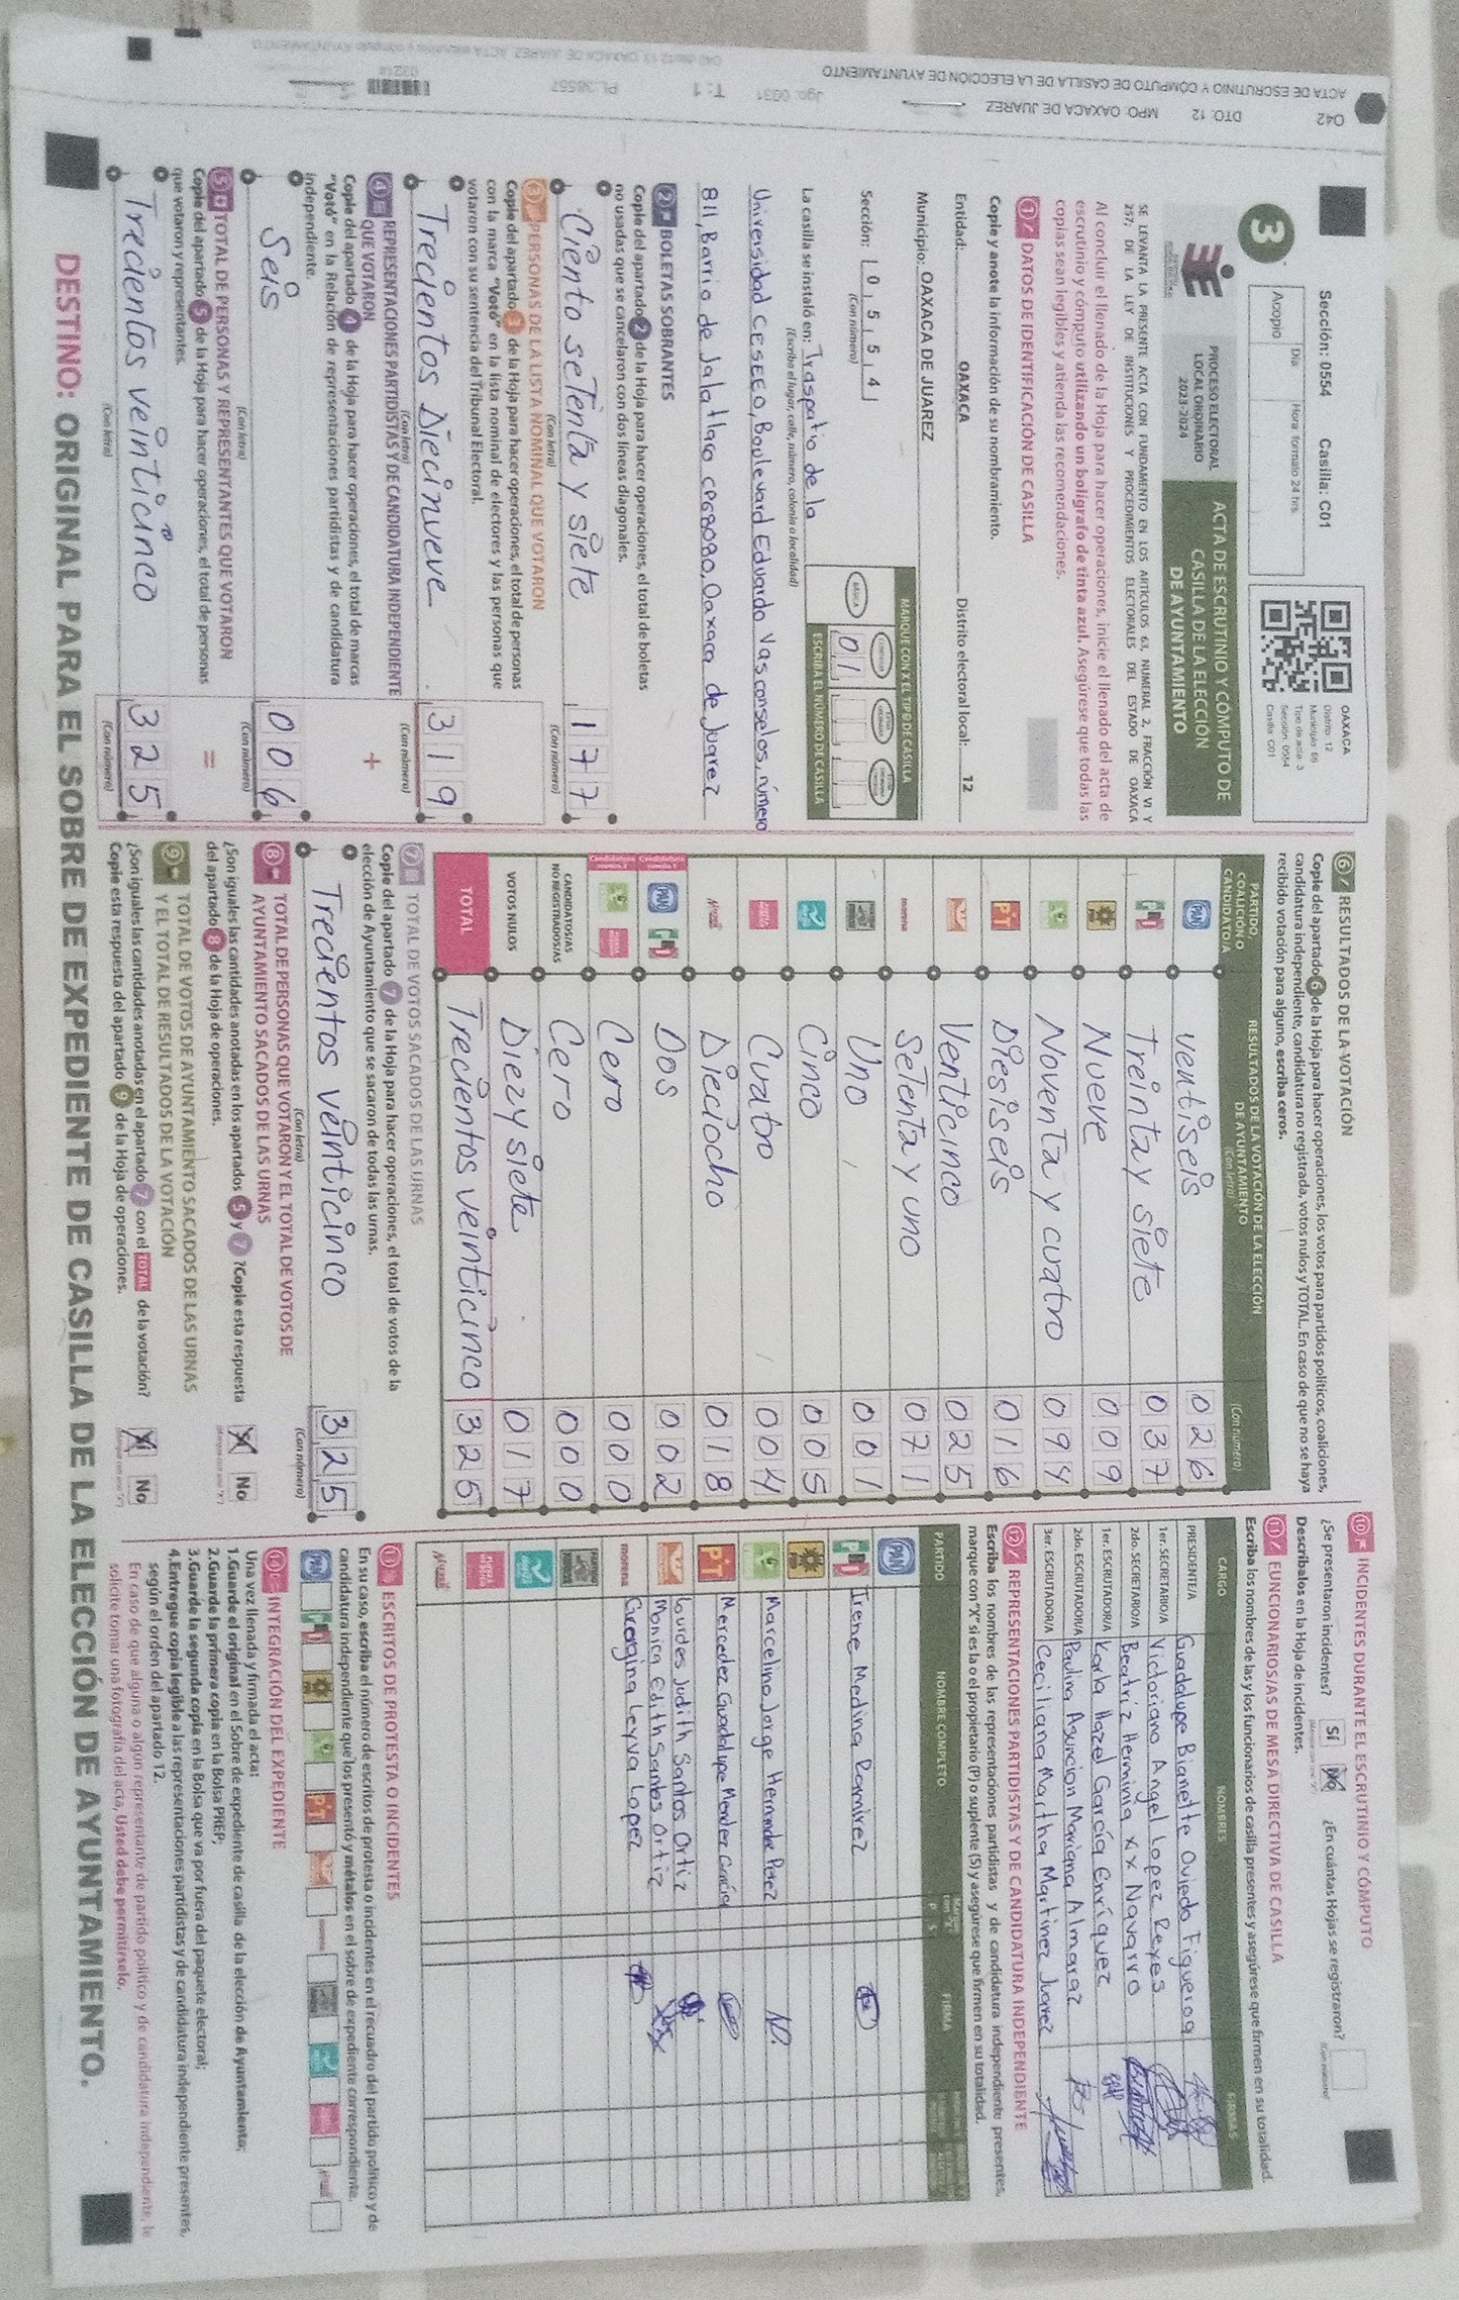 Sección: 0554 Casilla: C01
Día Hora formato 24 hrs.
Acopio
OAXACA
Distrito: 12
Tipo de acta: 3
Sección: 0554
Casilla: C01
3
PROCESO ELECTORAL
LOCAL ORDINARIO
2023-2024
ACTA DE ESCRUTINIO Y CÓMPUTO DE
CASILLA DE LA ELECCIÓN
DE AYUNTAMIENTO
SE LEVANTA LA PRESENTE ACTA CON FUNDAMENTO EN LOS ARTÍCULOS 63, NUMERAL 2, FRACCIÓN VI Y
257; DE LA LEY DE INSTITUCIONES Y PROCEDIMIENTOS ELECTORALES DEL ESTADO DE OAXACA
Al concluir el llenado de la Hoja para hacer operaciones, inicie el llenado del acta de
escrutinio y cómputo utilizando un bolígrafo de tinta azul. Asegúrese que todas las
copias sean legibles y atienda las recomendaciones.
1 DATOS DE IDENTIFICACIÓN DE CASILLA
Copie y anote la información de su nombramiento.
Entidad: OAXACA Distrito electoral local: 12
Municipio: OAXACA DE JUAREZ
Sección: 0 5 5 4
(Con número)
MARQUE CON X EL TIPO DE CASILLA
BÁSICA
0 1
ESCRIBA EL NÚMERO DE CASILLA
La casilla se instaló en: Traspatio de la
(Escriba el lugar, calle, número, colonia o localidad)
Universidad CESEEO, Boulevard Eduardo Vasconselos, número
811, Barrio de Jalatlaco CP68080, Oaxaca de Juarez
2 BOLETAS SOBRANTES
Copie del apartado 2 de la Hoja para hacer operaciones, el total de boletas
no usadas que se cancelaron con dos líneas diagonales.
Ciento seTenTa y siete 177
(Con letra) (Con número)
3 PERSONAS DE LA LISTA NOMINAL QUE VOTARON
Copie del apartado 3 de la Hoja para hacer operaciones, el total de personas
con la marca "Votó" en la lista nominal de electores y las personas que
votaron con su sentencia del Tribunal Electoral.
Trecientos Diecinueve 319
(Con letra) (Con número)
4 REPRESENTACIONES PARTIDISTAS Y DE CANDIDATURA INDEPENDIENTE
QUE VOTARON
+
Copie del apartado 4 de la Hoja para hacer operaciones, el total de marcas
"Votó" en la Relación de representaciones partidistas y de candidatura
independiente.
Seis 006
(Con letra) (Con número)
5 TOTAL DE PERSONAS Y REPRESENTANTES QUE VOTARON
=
Copie del apartado 5 de la Hoja para hacer operaciones, el total de personas
que votaron y representantes.
Trecientos veinticinco 325
(Con letra) (Con número)
6 RESULTADOS DE LA VOTACIÓN
Copie del apartado 6 de la Hoja para hacer operaciones, los votos para partidos políticos, coaliciones,
candidatura independiente, candidatura no registrada, votos nulos y TOTAL. En caso de que no se haya
recibido votación para alguno, escriba ceros.
PARTIDO,
COALICIÓN O
CANDIDATO/A
RESULTADOS DE LA VOTACIÓN DE LA ELECCIÓN
DE AYUNTAMIENTO
(Con letra)
(Con número)
PAN ventiseis 026
PRI Treinta y siete 037
Nueve 009
NovenTa y cuatro 094
PT Diesiseis 016
Venticinco 025
morena SeTenta y uno 071
Uno 001
Cinco 005
Cuatro 004
Dieciocho 018
PAN PRI Dos 002
Cero 000
CANDIDATOS/AS
NO REGISTRADOS/AS Cero 000
VOTOS NULOS Diez y siete 017
TOTAL Trecientos veinticinco 325
7 TOTAL DE VOTOS SACADOS DE LAS URNAS
Copie del apartado 7 de la Hoja para hacer operaciones, el total de votos de la
elección de Ayuntamiento que se sacaron de todas las urnas.
Trecientos veinticinco 325
(Con letra) (Con número)
8 TOTAL DE PERSONAS QUE VOTARON Y EL TOTAL DE VOTOS DE
AYUNTAMIENTO SACADOS DE LAS URNAS
¿Son iguales las cantidades anotadas en los apartados 5 y 7 ?Copie esta respuesta
del apartado 8 de la Hoja de operaciones.
X No
9 TOTAL DE VOTOS DE AYUNTAMIENTO SACADOS DE LAS URNAS
Y EL TOTAL DE RESULTADOS DE LA VOTACIÓN
¿Son iguales las cantidades anotadas en el apartado 7 con el TOTAL de la votación?
Copie esta respuesta del apartado 9 de la Hoja de operaciones.
X No
10 INCIDENTES DURANTE EL ESCRUTINIO Y CÓMPUTO
¿Se presentaron incidentes? Sí No ¿En cuántas Hojas se registraron?
Descríbalos en la Hoja de incidentes.
11 FUNCIONARIOS/AS DE MESA DIRECTIVA DE CASILLA
Escriba los nombres de las y los funcionarios de casilla presentes y asegúrese que firmen en su totalidad.
CARGO NOMBRES FIRMAS
PRESIDENTE/A Guadalupe Bianette Oviedo Figueroa
1er. SECRETARIO/A Victoriano Angel Lopez Reyes
2do. SECRETARIO/A Beatriz Herminia xx Navarro
1er. ESCRUTADOR/A Karla Hazel García Enríquez
2do. ESCRUTADOR/A Paulina Asuncion Mariana Almaraz
3er. ESCRUTADOR/A Ceciliana Martha Martinez Juarez
12 REPRESENTACIONES PARTIDISTAS Y DE CANDIDATURA INDEPENDIENTE
Escriba los nombres de las representaciones partidistas y de candidatura independiente presentes,
marque con "X" si es la o el propietario (P) o suplente (S) y asegúrese que firmen en su totalidad.
PARTIDO NOMBRE COMPLETO P S FIRMA
PAN
PRI Irene Medina Ramirez
Marcelino Jorge Hernandez Perez
PT Mercedez Guadalupe Mendez García
Lourdes Judith Santos Ortiz
Monica Edith Santos Ortiz
morena Georgina Leyva Lopez
13 ESCRITOS DE PROTESTA O INCIDENTES
En su caso, escriba el número de escritos de protesta o incidentes en el recuadro del partido político y de
candidatura independiente que los presentó y métalos en el sobre de expediente correspondiente.
14 INTEGRACIÓN DEL EXPEDIENTE
Una vez llenada y firmada el acta:
1.Guarde el original en el Sobre de expediente de casilla de la elección de Ayuntamiento;
2.Guarde la primera copia en la Bolsa PREP;
3.Guarde la segunda copia en la Bolsa que va por fuera del paquete electoral;
4.Entregue copia legible a las representaciones partidistas y de candidatura independiente presentes,
según el orden del apartado 12.
En caso de que alguna o algún representante de partido político y de candidatura independiente, le
solicite tomar una fotografía del acta, Usted debe permitírselo.
DESTINO: ORIGINAL PARA EL SOBRE DE EXPEDIENTE DE CASILLA DE LA ELECCIÓN DE AYUNTAMIENTO.
042 DTO: 12 MPO: OAXACA DE JUAREZ
ACTA DE ESCRUTINIO Y CÓMPUTO DE CASILLA DE LA ELECCIÓN DE AYUNTAMIENTO